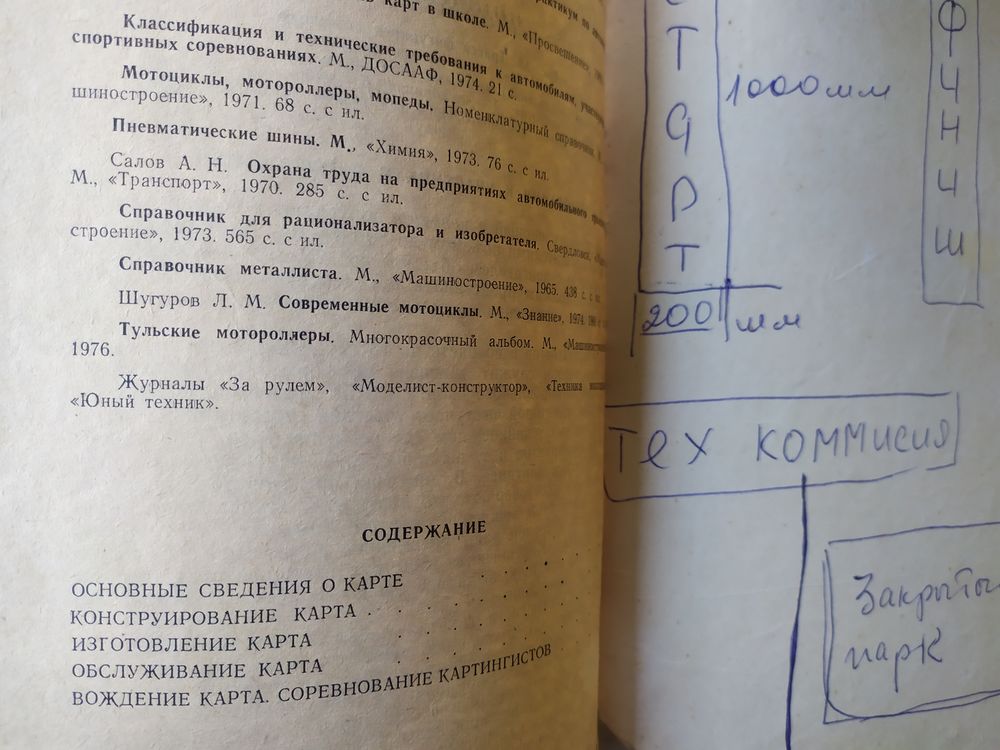 карт в школе. М., «Просвещение»,
Классификация и технические требования к автомобилям,
спортивных соревнованиях. М., ДОСААФ, 1974. 21 с.
Мотоциклы, мотороллеры, мопеды. Номенклатурный справочник.
шиностроение», 1971. 68 с. с ил.
Пневматические шины. М., «Химия», 1973. 76 с. с ил.
Салов А. Н. Охрана труда на предприятиях автомобильного
М., «Транспорт», 1970. 285 с. с ил.
Справочник для рационализатора и изобретателя. Свердловск,
строение», 1973. 565 с. с ил.
Справочник металлиста. М., «Машиностроение», 1965. 438 с. с
Шугуров Л. М. Современные мотоциклы. М., «Знание», 1974.
Тульские мотороллеры. Многокрасочный альбом. М.,
1976.
Журналы «За рулем», «Моделист-конструктор», «Техника
«Юный техник».
СОДЕРЖАНИЕ
ОСНОВНЫЕ СВЕДЕНИЯ О КАРТЕ
КОНСТРУИРОВАНИЕ КАРТА
ИЗГОТОВЛЕНИЕ КАРТА
ОБСЛУЖИВАНИЕ КАРТА
ВОЖДЕНИЕ КАРТА. СОРЕВНОВАНИЕ КАРТИНГИСТОВ
СТАРТ
1000мм
ФИНИШ
200 мм
Тех коммисия
Закрыты
парк